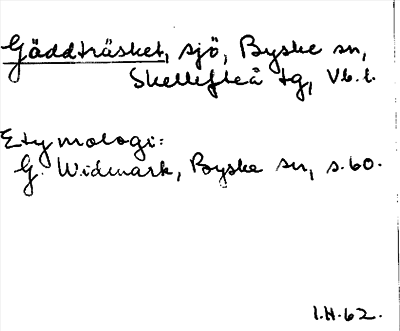 Gäddträsket, sjö, Byske sn,
Skellefteå tg, Vb.l.
Etymologi:
G. Widmark, Byske sn, s.60.
I.H.62.